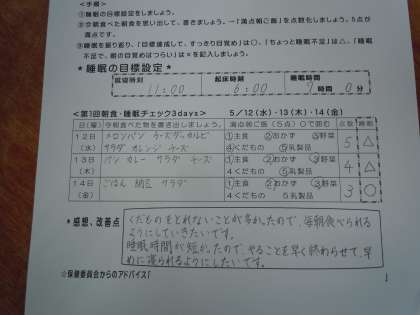 <手順>
①睡眠の目標設定をしましょう。
②今朝食べた朝食を思い出して、書きましょう。→「満点朝ご飯」を点数化しましょう。5点が
満点です。
③睡眠を振り返り、「目標達成して、すっきり目覚め」は○、「ちょっと睡眠不足」は△、「睡眠
不足で、朝の目覚めはつらい」は×を記入しましょう。
*睡眠の目標設定*
就寝時刻 起床時刻 睡眠時間
11:00 6:00 7時間 0分
<第1回朝食・睡眠チェック3days> 5/12(水)・13(木)・14(金)
日(曜) 今朝食べた物を書き出しましょう。 満点朝ご飯(5点)○で囲む 点数 睡眠
12日(水) メロンパン チーズ カルビ サラダ オレンジ チーズ ①主食 ②おかず ③野菜 ④くだもの ⑤乳製品 5 △
13日(木) パン カレー サラダ チーズ ①主食 ②おかず ③野菜 4くだもの ⑤乳製品 4 △
14日(金) ごはん 納豆 サラダ ①主食 ②おかず ③野菜 4くだもの 5乳製品 3 ○
*感想、改善点
くだものをとれないことが多かったので、毎朝食べられる
ようにしていきたいです。
睡眠時間が短かったので、やることを早く終わらせて、早
めに寝られるようにしたいです。
☆保健委員会からのアドバイス「 」